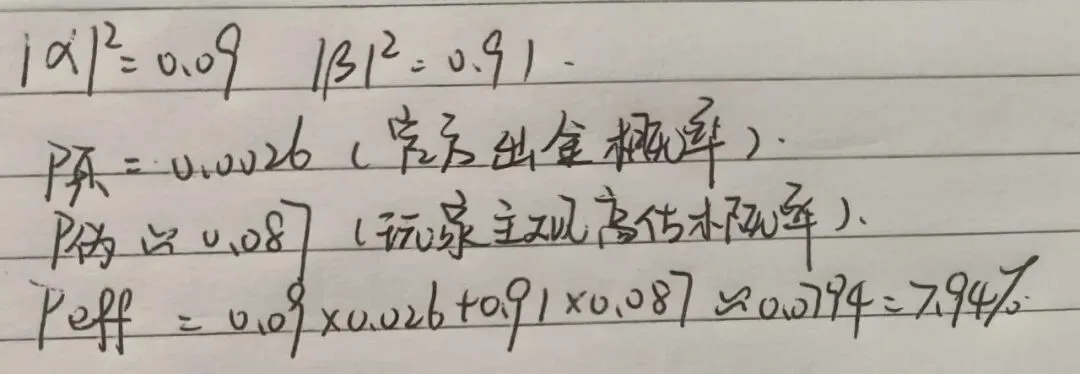 |α|²=0.09 |β|²=0.91.
P真=0.0026(官方出金概率).
P伪≈0.087(玩家主观高估概率).
Peff=0.09×0.026+0.91×0.087≈0.0794=7.94%.